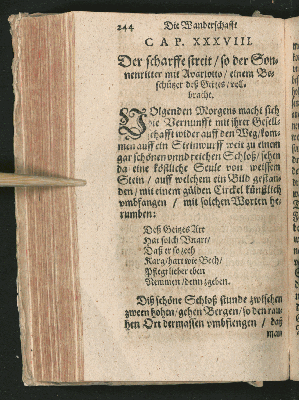 244 Die Wanderschafft
CAP. XXXVIII.
Der scharffe streit / so der Son-
nenritter mit Avarlotto / einem Be-
schützer deß Geitzes / voll-
bracht.
Folgenden Morgens macht sich
die Vernunfft mit jhrer Gesell-
schafft wider auff den Weg / kom-
men auff ein Steinwurff weit zu einem
gar schönen vnnd reichen Schloß / sehen
da eine köstliche Seule von weissem
Stein / auff welchem ein Bild gestan-
den / mit einem gülden Circkel künstlich
vmbfangen / mit solchen Worten he-
rumben:
Deß Geitzes Art
Hat solch Vnart /
Daß er so
Karg / hart wie Bech /
Pflegt lieber eben
Nemmen / denn zgeben.
Diß schöne Schloß stunde zwischen
zween hohen / gehen Bergen / so den rau-
hen Ort dermassen vmbfiengen / daß
man